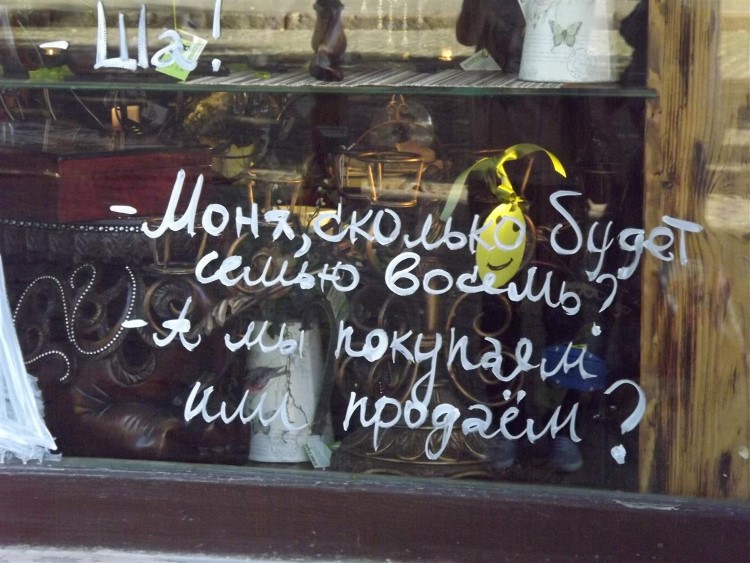 - Ша!
- Моня, сколько будет
семью восемь?
- А мы покупаем
или продаём?